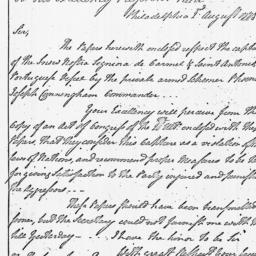 Philadelphia 1st August 178
Sir,
The Papers herewith enclosed respect the capture
of the Snow Nostra Signiora de Carmel & Saint Antonio
Portuguese Vessel by the private armed Schooner Phoenix
Joseph Cunningham Commander
Your Excellency will perceive from the
Copy of an Act of Congress of the Ult. enclosed with these
Papers, that they consider this Capture as a violation of the
Laws of Nations, and recommend proper Measures to be taken
for giving Satisfaction to the Party injured and
the Aggressors
These Papers should have been transmitted
sooner, but the Secretary could not furnish me with them
till Yesterday I have the honor to be Sir
With great Respect Your